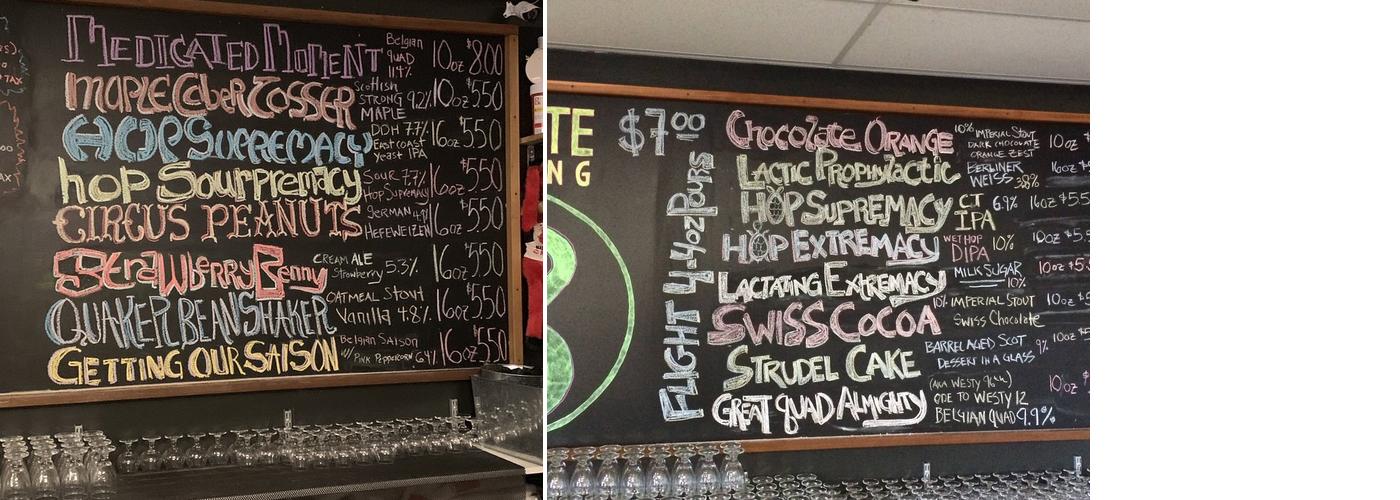 MEDICATED MOMENT Belgian QUAD 11.4% 10oz $8.00
MAPLE CaberTOSSER Scottish STRONG MAPLE 9.2% 10oz $550
HOP SUPREMACY DDH 7.7% East coast Yeast IPA 16oz $550
hop Sourpremacy Sour 7.7% Hop Supremacy 16oz $550
CIRCUS PEANUTS German HEFEWEIZEN 16oz $550
StraWberry Benny CREAM ALE Strawberry 5.3% 16oz $550
QUAKER BEAN SHAKER OATMEAL Stout Vanilla 4.8% 16oz $550
GETTING OUR SAISON Belgian SAISON w/ PINK Peppercorn 6.4% 16oz $550
TAX
TE
NG
$7.00
FLIGHT 4-4oz Pours
Chocolate ORANGE 10% IMPERIAL Stout DARK CHOCOLATE ORANGE ZEST 10oz
LACTIC PROPHYlactic BERLINER WEISS 3.8% 16oz
HOP SUPREMACY CT IPA 6.9% 16oz $5.5
HOP EXTREMACY WET HOP DIPA 10% 10oz $5.
LACTATING EXTREMACY MILK SUGAR 10% 10oz $5
SWISS COCOA 10% IMPERIAL STOUT SWISS Chocolate 10oz
STRUDEL CAKE BARREL AGED SCOT 9% DESSERT IN A GLASS 10oz
GREAT QUAD ALMIGHTY ODE TO WESTY 12 BELGIAN QUAD 9.9% 10oz